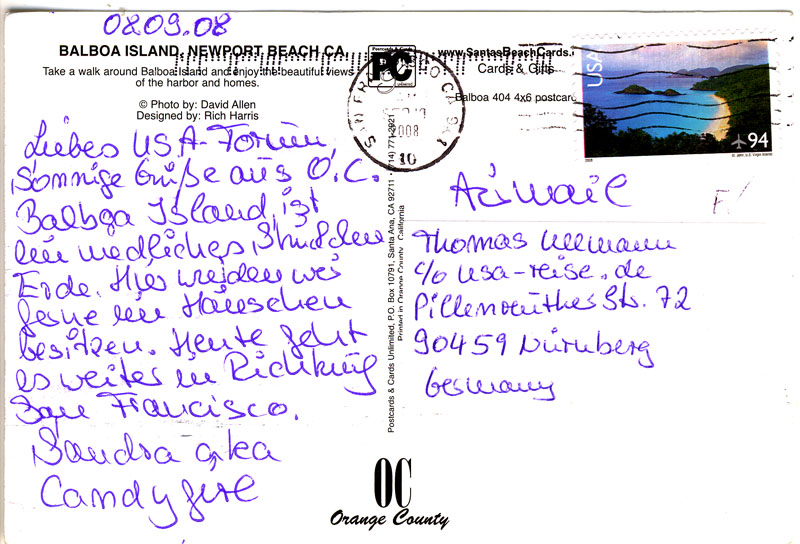 08.09.08
BALBOA ISLAND, NEWPORT BEACH CA.
Take a walk around Balboa Island and enjoy the beautiful views
of the harbor and homes.
© Photo by: David Allen
Designed by: Rich Harris
Liebes USA-Forum,
Sonnige Grüße aus O.C.
Balboa Island ist
ein niedliches Stückchen
Erde. Hier würden wir
gerne ein Häuschen
besitzen. Heute geht
es weiter in Richtung
San Francisco.
Sandra aka
Candygirl
PC
www.SantasBeachCards.
Cards & Gifts
Balboa 404 4x6 postcard
2008
10
USA
94
Postcards & Cards Unlimited, P.O. Box 10791, Santa Ana, CA 92711 • (714) 771-2921
Printed in Orange County, California
Airmail
Thomas Ullmann
c/o usa-reise.de
Pillenreuther Str. 72
90459 Nürnberg
Germany
OC
Orange County